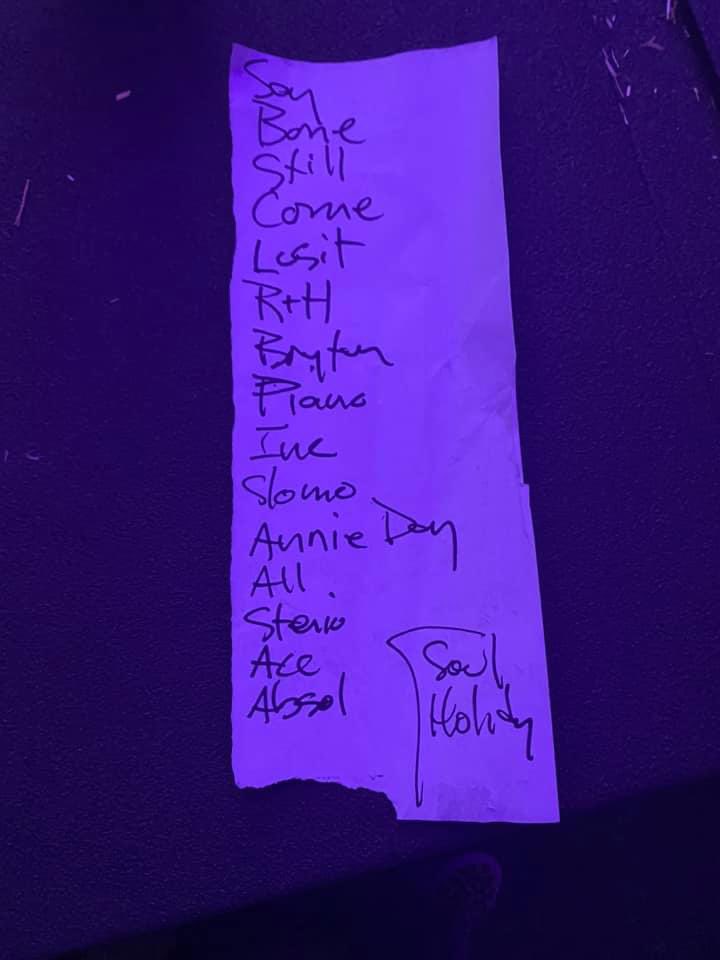 Say
Bone
Still
Come
Losit
R+H
Bryten
Piano
Inc
Slomo
Annie Day
All
Sterio
Ace
Absol
Soul
Holidy